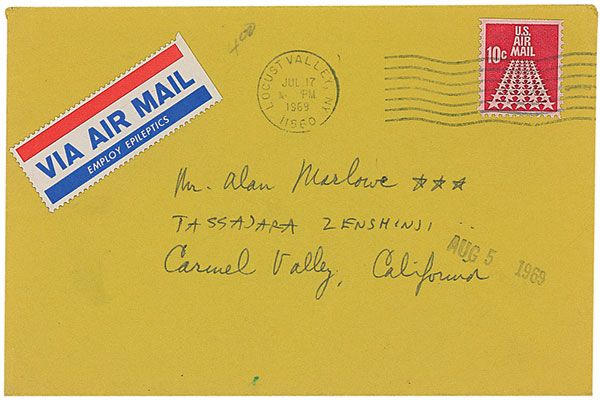 400
LOCUST VALLEY, NY
JUL 17
PM
1969
11560
U.S.
AIR
MAIL
10c
VIA AIR MAIL
EMPLOY EPILEPTICS
Mr. Alan Marlowe
TASSAJARA ZENSHINJI
Carmel Valley, California
AUG 5 1969